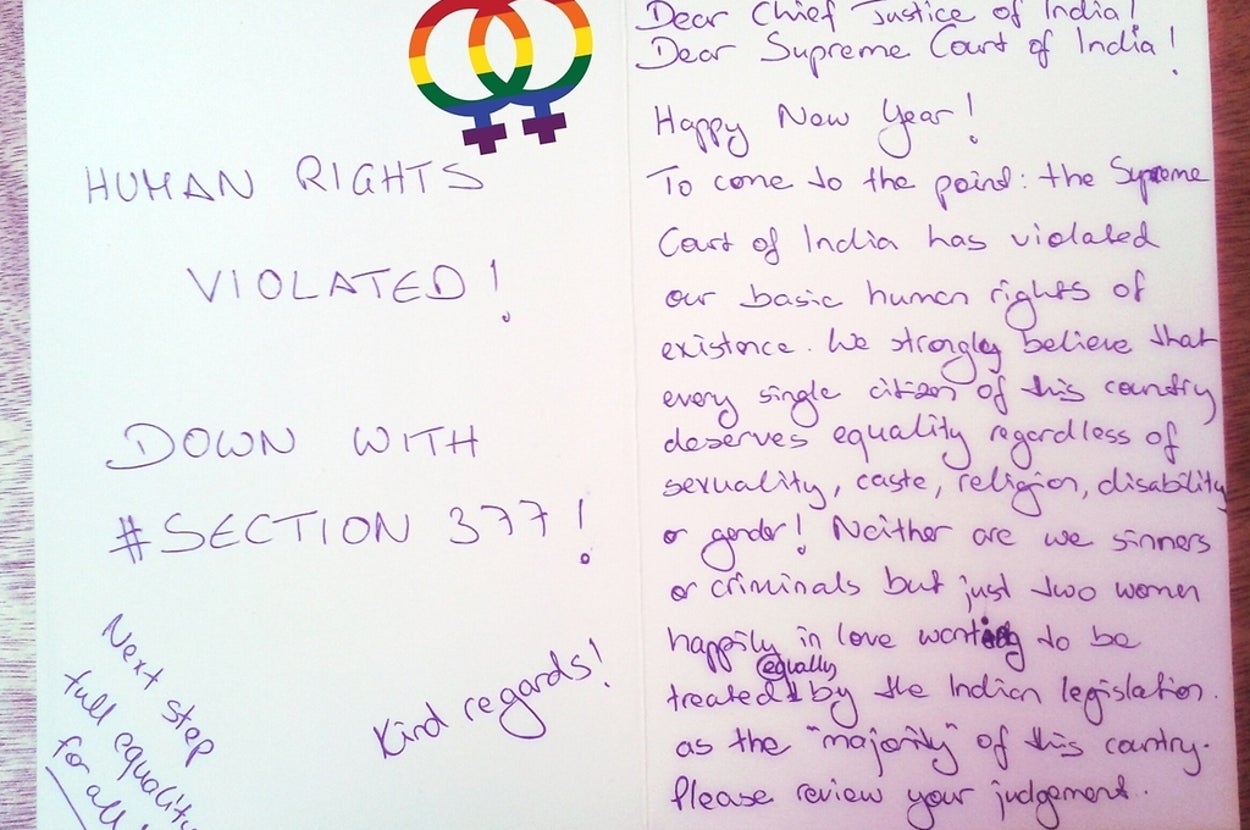 HUMAN RIGHTS
VIOLATED!
DOWN WITH
#SECTION 377!
Next step
full equality
for all
Kind regards!
Dear Chief Justice of India!
Dear Supreme Court of India!
Happy New Year!
To come to the point: the Supreme
Court of India has violated
our basic human rights of
existence. We strongly believe that
every single citizen of this country
deserves equality regardless of
sexuality, caste, religion, disability
or gender! Neither are we sinners
or criminals but just two women
happily in love wanting to be
equally
treated by the Indian legislation
as the "majority" of this country.
Please review your judgement.